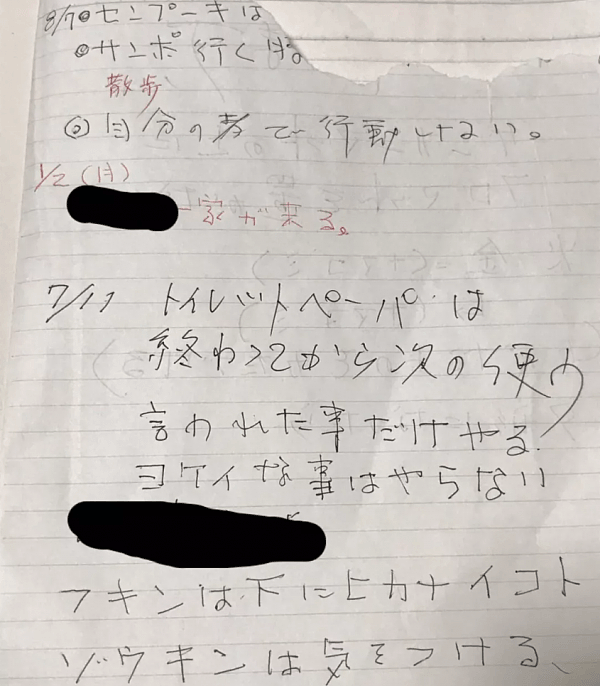 8/7◎センプーキは
◎サンポ行くは
散歩
◎自分の考で行動しない。
1/2(月)
一家が来る。
7/17 トイレットペーパーは
終わってから次の使う
言われた事だけやる.
ヨケイな事はやらない
フキンは下にヒカナイコト
ゾウキンは気をつける、